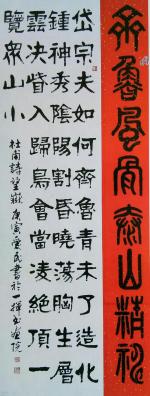 齊魯風骨泰山精神
岱宗夫如何齊魯青未了造化
鍾神秀陰陽割昏曉蕩胸生層
雲決眥入歸鳥會當凌絕頂一
覽眾山小
杜甫詩望嶽 庚寅 民書於一